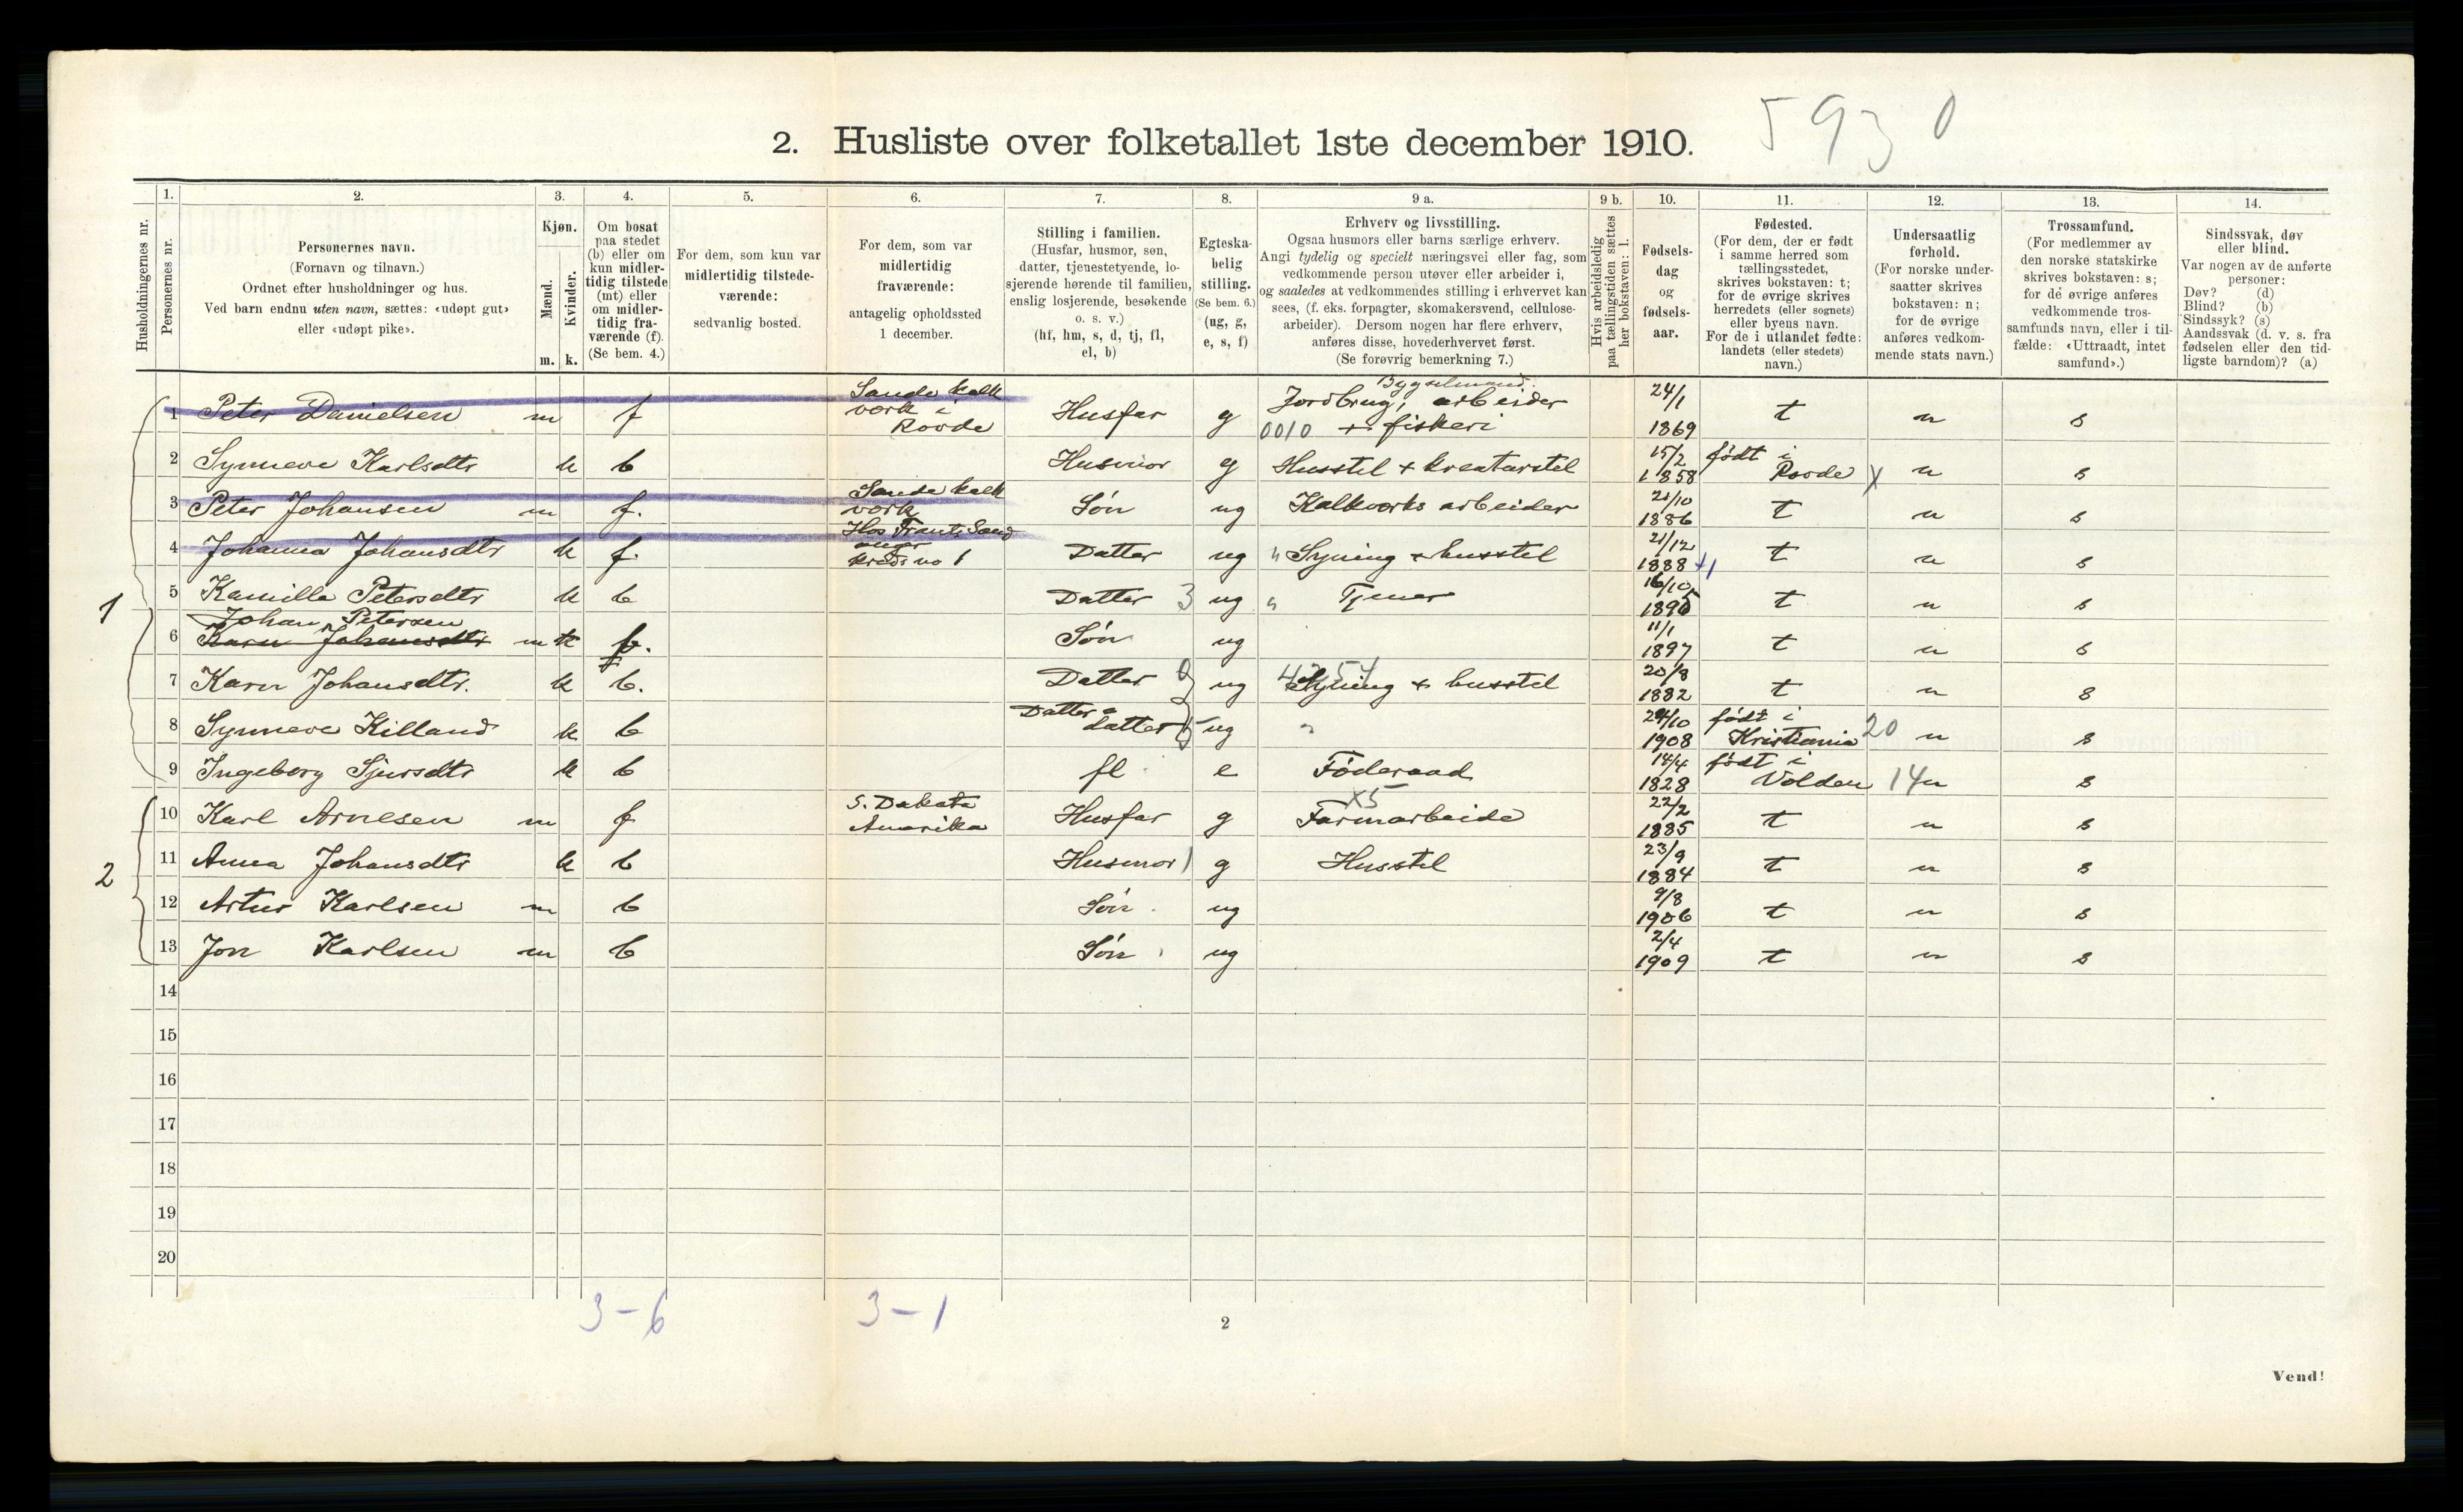 5930
2. Husliste over folketallet 1ste december 1910.
Husholdningernes nr.
1. Personernes nr.
2. Personernes navn.
(Fornavn og tilnavn.)
Ordnet efter husholdninger og hus.
Ved barn endnu uten navn, sættes: «udøpt gut»
eller «udøpt pike».
3. Kjøn.
Mænd. Kvinder.
m. k.
4. Om bosat
paa stedet
(b) eller om
kun midler-
tidig tilstede
(mt) eller
om midler-
tidig fra-
værende (f).
(Se bem. 4.)
5. For dem, som kun var
midlertidig tilstede-
værende:
sedvanlig bosted.
6. For dem, som var
midlertidig
fraværende:
antagelig opholdssted
1 december.
7. Stilling i familien.
(Husfar, husmor, søn,
datter, tjenestetyende, lo-
sjerende hørende til familien,
enslig losjerende, besøkende
o. s. v.)
(hf, hm, s, d, tj, fl,
el, b)
8. Egteska-
belig
stilling.
(Se bem. 6.)
(ug, g,
e, s, f)
9 a. Erhverv og livsstilling.
Ogsaa husmors eller barns særlige erhverv.
Angi tydelig og specielt næringsvei eller fag, som
vedkommende person utøver eller arbeider i,
og saaledes at vedkommendes stilling i erhvervet kan
sees, (f. eks. forpagter, skomakersvend, cellulose-
arbeider). Dersom nogen har flere erhverv,
anføres disse, hovederhvervet først.
(Se forøvrig bemerkning 7.)
9 b. Hvis arbeidsledig
paa tællingstiden sættes
her bokstaven: l.
10. Fødsels-
dag
og
fødsels-
aar.
11. Fødested.
(For dem, der er født
i samme herred som
tællingsstedet,
skrives bokstaven: t;
for de øvrige skrives
herredets (eller sognets)
eller byens navn.
For de i utlandet fødte:
landets (eller stedets)
navn.)
12. Undersaatlig
forhold.
(For norske under-
saatter skrives
bokstaven: n;
for de øvrige
anføres vedkom-
mende stats navn.)
13. Trossamfund.
(For medlemmer av
den norske statskirke
skrives bokstaven: s;
for de øvrige anføres
vedkommende tros-
samfunds navn, eller i til-
fælde: «Uttraadt, intet
samfund».)
14. Sindssvak, døv
eller blind.
Var nogen av de anførte
personer:
Døv? (d)
Blind? (b)
Sindssyk? (s)
Aandssvak (d. v. s. fra
fødselen eller den tid-
ligste barndom)? (a)
1
1 Peter Danielsen m f Sande kalk værk i Rovde Husfar g Jordbrug, Bygselmand. arbeider + fiskeri 0010 24/1 1869 t n s
2 Synneve Karlsdtr k b Husmor g Husstel + kreaturstel 15/2 1858 født i Rovde X n s
3 Peter Johansen m f. Sande kalk værk Søn ug Kalkværks arbeider 21/10 1886 t n s
4 Johanna Johansdtr k f. Hos Frants Sand kreds no 1 Datter ug " Syning + husstel 21/12 1888 +1 t n s
5 Kamilla Petersdtr k b Datter 3 ug " Tjener 16/10 1895 t n s
6 Johan Petersen Karn Johansdtr m k b. f Søn ug 11/1 1897 t n s
7 Karn Johansdtr. k b. Datter ug Syning + husstel 20/8 1882 t n s
8 Synneve Killand k b Datter datter ug " 24/10 1908 født i Kristiania 20 n s
9 Ingeborg Sjursdtr k b fl e Føderaad 14/4 1828 født i Volden 14 n s
2
10 Karl Arnesen m f S. Dakota Amerika Husfar g X5 Farmarbeide 22/2 1885 t n s
11 Anna Johansdtr k b Husmor 1 g Husstel 23/9 1884 t n s
12 Artur Karlsen m b Søn ug 9/8 1906 t n s
13 Jon Karlsen m b Søn ug 2/4 1909 t n s
14
15
16
17
18
19
20
3-6 3-1
2
Vend!